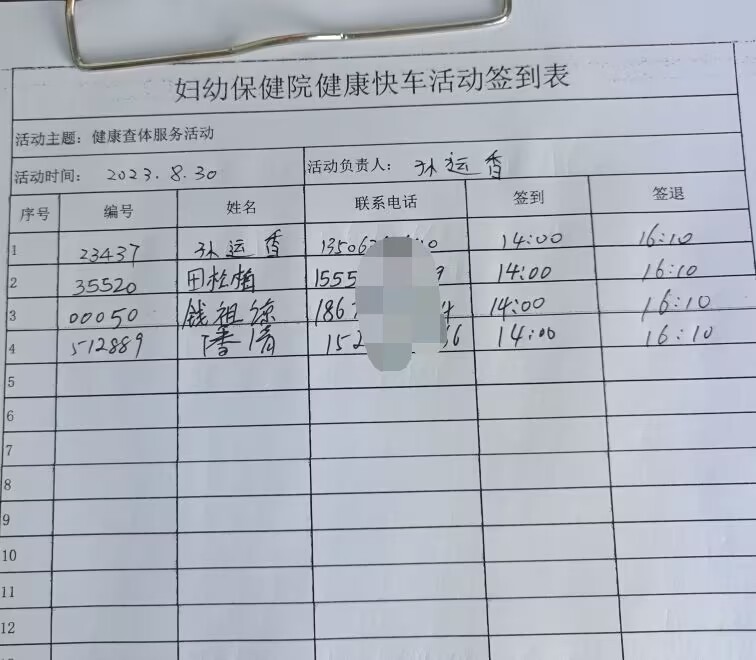 妇幼保健院健康快车活动签到表
活动主题：健康查体服务活动
活动时间： 2023.8.30 活动负责人： 孙运香
序号 编号 姓名 联系电话 签到 签退
1 23437 孙运香 14:00 16:10
2 35520 田松梅 1555 9 14:00 16:10
3 00050 钱祖琼 186 14:00 16:10
4 512889 潘倩 152 36 14:00 16:10
5
6
7
8
9
10
11
12